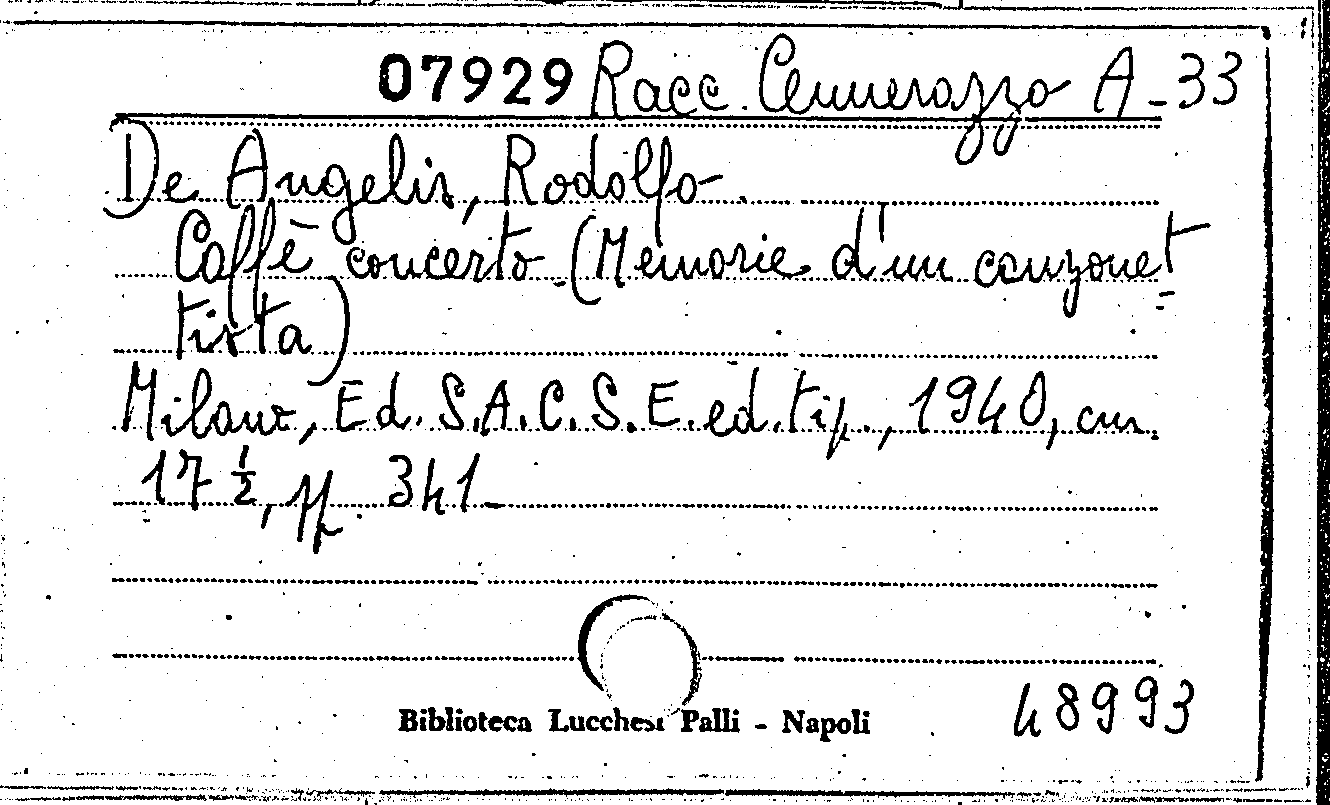 07929 Racc. Cennerazzo A-33
De Angelis, Rodolfo.
Caffè concerto (Memorie d'un canzonet=
tista)
Milano, Ed. S.A.C.S.E. ed. tip., 1940, cm.
17 ½, pp. 341
Biblioteca Lucchesi Palli - Napoli
48993